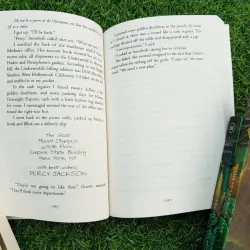 a time."
I got up. "I'll be back."
Medusa's office. Her account book showed her six most
Hades and Persephone garden. According to one freight
bill, the Underworld's billing address was DOA Recording
Studios, West Hollywood, California. I folded up the bill
and stuffed it in my pocket.
In the cash register I found twenty dollars, a few
golden drachmas, and some packing slips for Hermes
Overnight Express, each with a little leather bag attached
for coins. I rummaged around the rest of the office until I
found the right-size box.
I went back to the picnic table, packed up Medusa's
head, and filled out a delivery slip:
The Gods
Mount Olympus
600th Floor,
Empire State Building
New York, NY
With best wishes,
PERCY JACKSON
"They're not going to like that," Grover warned.
"They'll think you're impertinent."
I poured some golden drachmas in the pouch. As soon
as I closed it, there was a sound like a cash register. The
package floated off the table and disappeared with a pop!
"I am impertinent," I said.
I looked at Annabeth, daring her to criticize.
She didn't. She seemed resigned to the fact that I had a
major talent for ticking off the gods. "Come on," she mut-
tered. "We need a new plan."